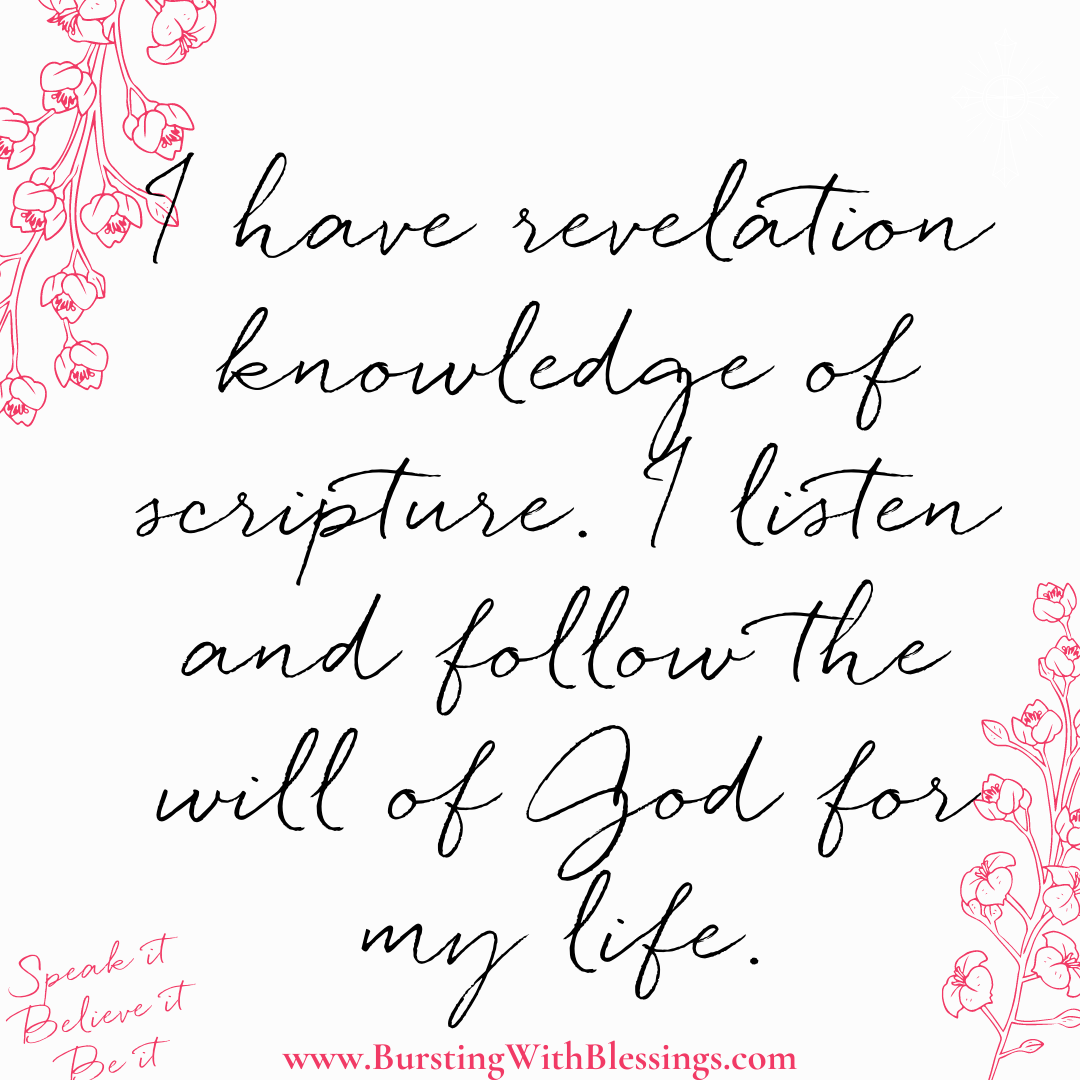 I have revelation
knowledge of
scripture. I listen
and follow the
will of God for
my life.
Speak it
Believe it
Be it
www.BurstingWithBlessings.com